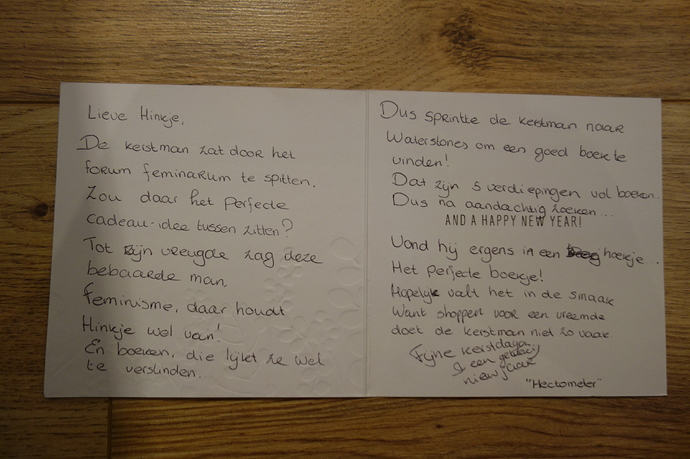 Lieve Hinkje,
De kerstman zat door het
forum feminarum te spitten.
Zou daar het perfecte
cadeau-idee tussen zitten?
Tot zijn vreugde zag deze
bebaarde man,
feminisme, daar houdt
Hinkje wel van!
En boeken, die lijkt ze wel
te verslinden.
Dus sprintte de kerstman naar
Waterstones om een goed boek te
vinden!
Dat zijn 5 verdiepingen vol boeken...
Dus na aandachtig zoeken...
AND A HAPPY NEW YEAR!
Vond hij ergens in een hoekje...
Het perfecte boekje!
Hopelijk valt het in de smaak
Want shoppen voor een vreemde
doet de kerstman niet zo vaak.
Fijne kerstdagen
& een gelukkig
nieuwjaar
"Hectometer"